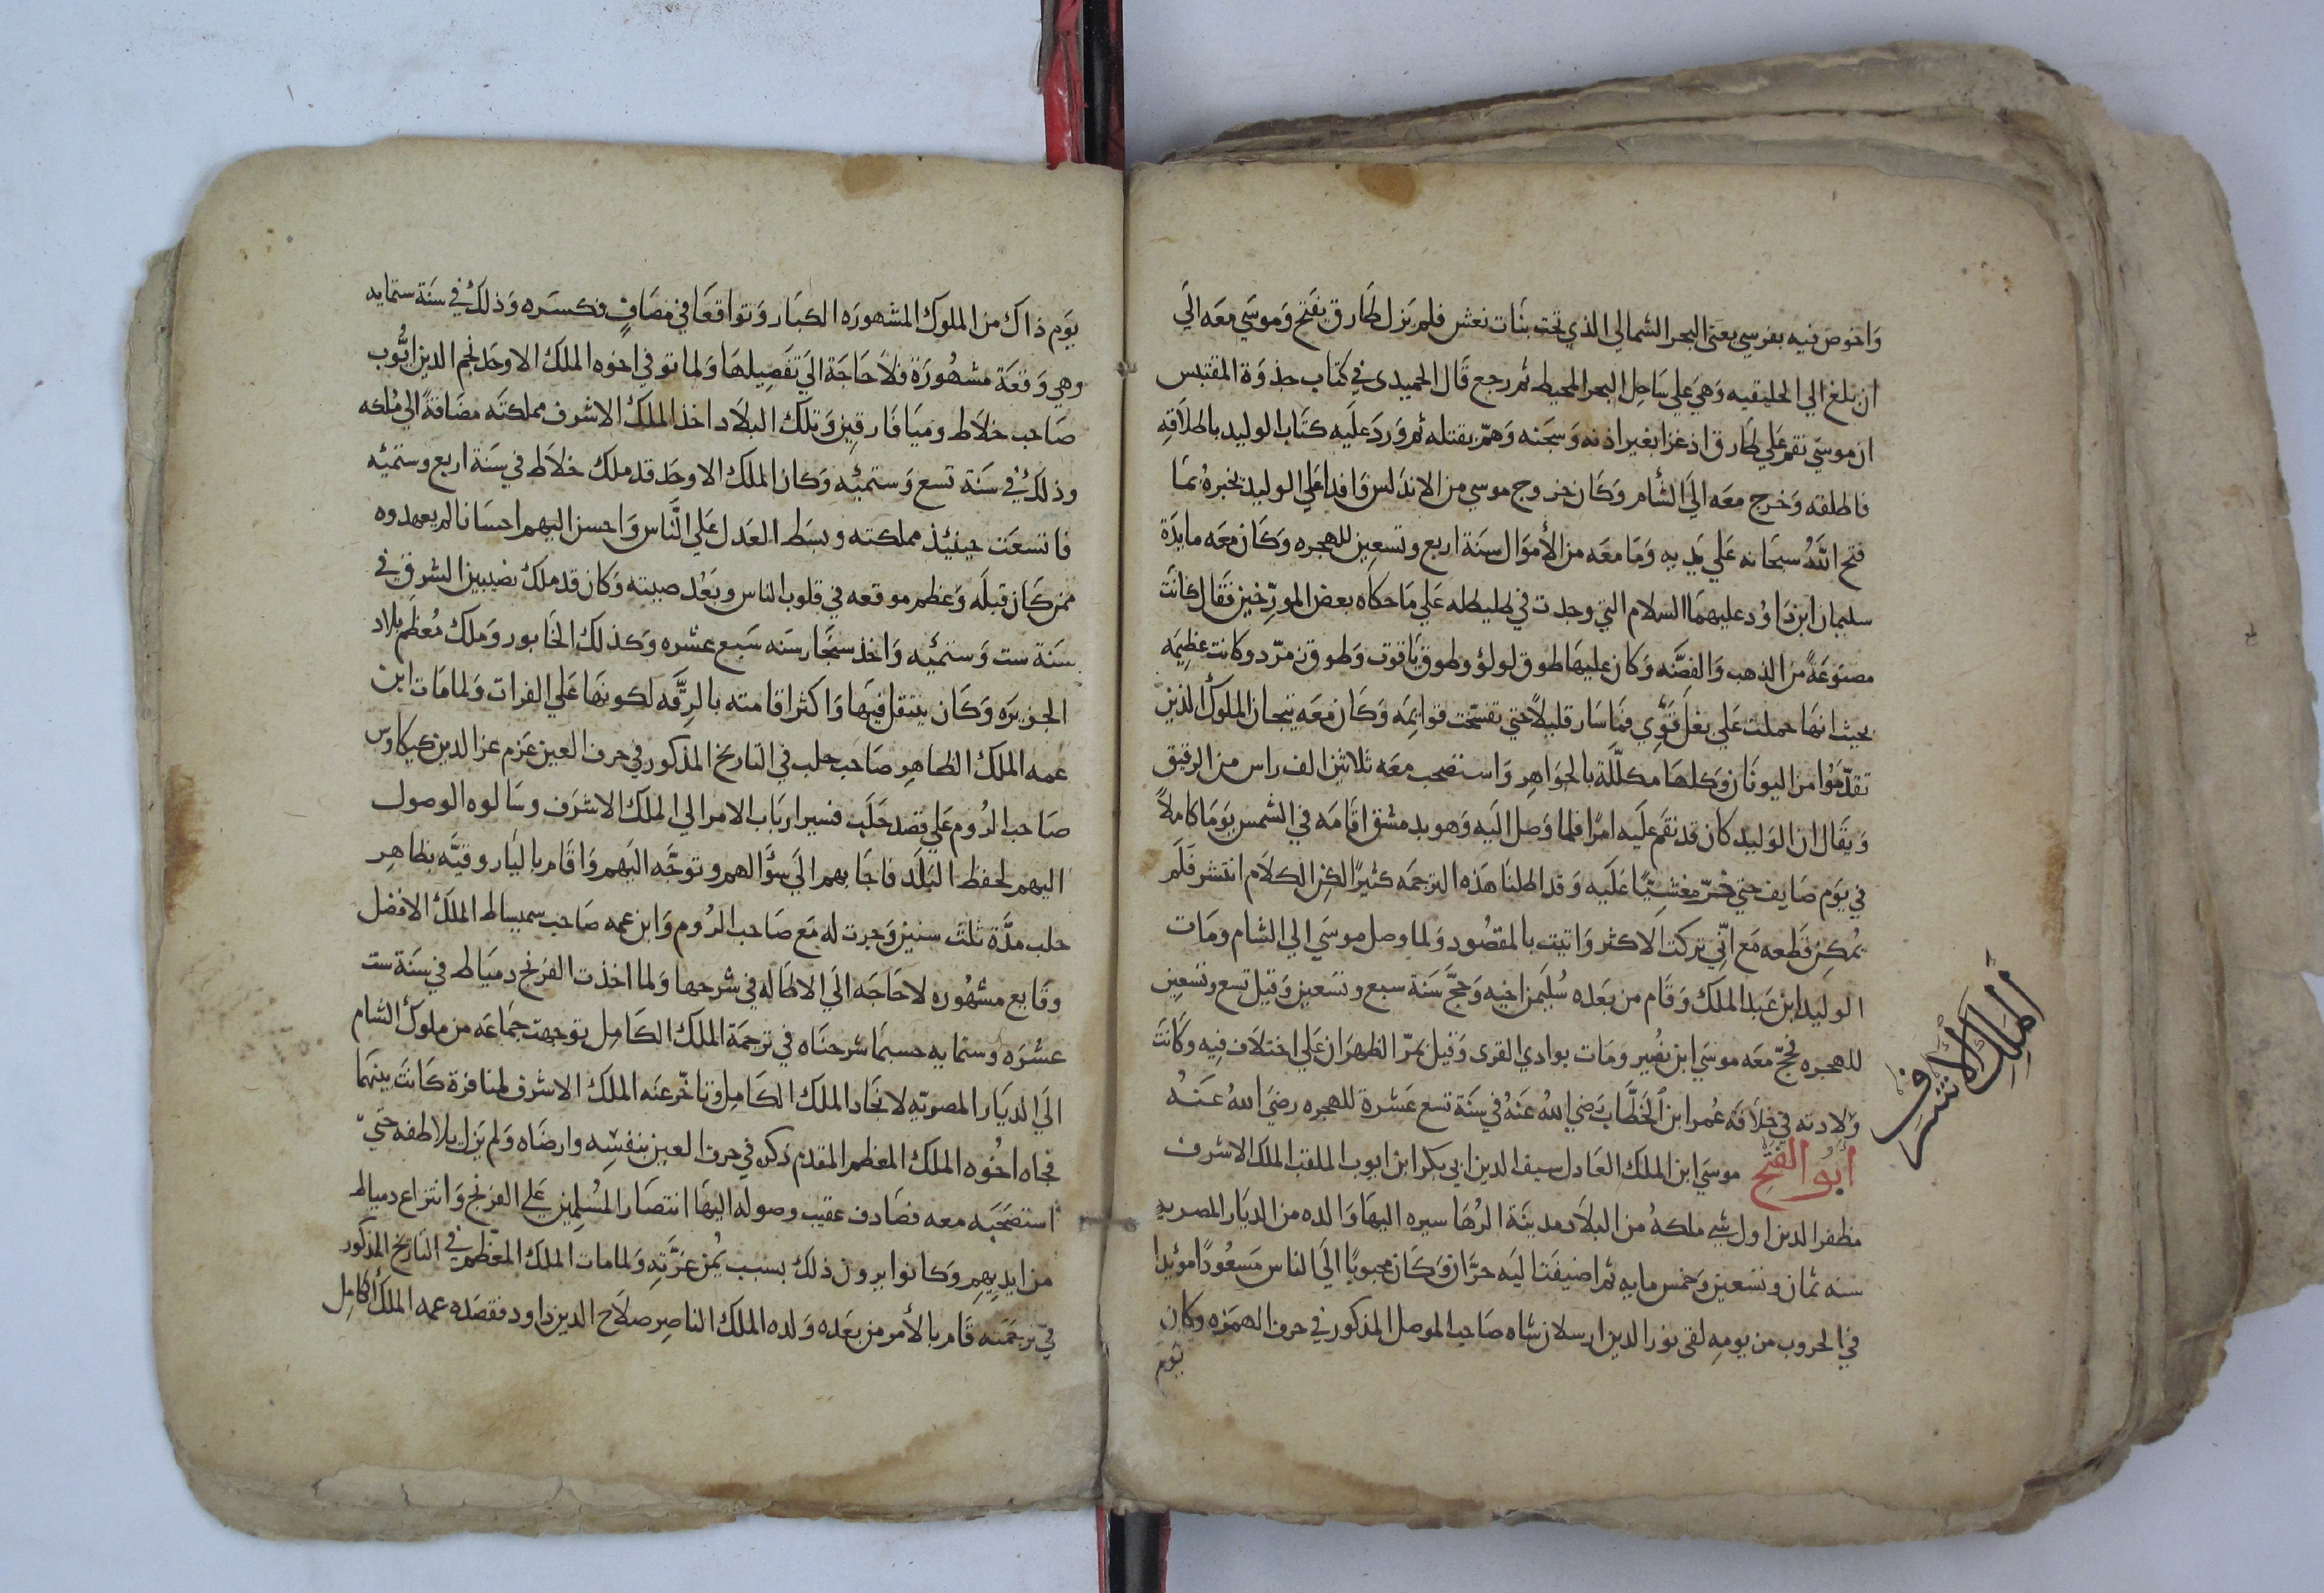 واخوض فيه بفرسي يعني البحر الشمالي الذي تحت بنات نعش فلم يزل طارق يفتح وموسي معه الي
ان بلغ الي الجليقيه وهي علي ساحل البحر المحيط ثم رجع قال الحميدي في كتاب جذوة المقتبس
ان موسي نقم علي طارق اذ غزا بغير اذنه وسجنه وهم بقتله ثم ورد عليه كتاب الوليد باطلاقه
فاطلقه وخرج معه الي الشام وكان خروج موسي من الاندلس وافدا علي الوليد يخبره بما
فتح الله سبحانه علي يديه وما معه من الأموال سنة اربع وتسعين للهجره وكان معه مايدة
سليمان ابن داود عليهما السلام التي وجدت في طليطله علي ما حكاه بعض المورّخين فقال كانت
مصنوعة من الذهب والفضه وكان عليها طوق لولؤ وطوق ياقوت وطوق زمرّد وكانت عظيمه
بحيث انها حملت علي بغل قوي فما سار قليلاً حتي تفسخت قوايمه وكان معه تيجان الملوك الذين
تقدّموا من اليونان وكلها مكللة بالجواهر واستصحب معه ثلاثين الف راس من الرقيق
ويقال ان الوليد كان قد نقم عليه امرًا فلما وصل اليه وهو بدمشق اقامه في الشمس يوما كاملاً
في يوم صايف حتي خرّ مغشيًا عليه وقد اطلنا هذه الترجمه كثيرًا لكن الكلام انتشر فلم
يمكن قطعه مع انّي تركت الاكثر واتيت بالمقصود ولما وصل موسي الي الشام ومات
الوليد ابن عبد الملك وقام من بعده سليمن اخيه وحجّ سنة سبع وتسعين وقيل تسع وتسعين
للهجره فحجّ معه موسي ابن نصير ومات بوادي القرى وقيل بمرّ الظهران علي اختلاف فيه وكانت
ولادته في خلافة عمر ابن الخطاب رضي الله عنه في سنة تسع عشرة للهجره رضي الله عنه
الملك الأشرف
أبو الفتح موسي ابن الملك العادل سيف الدين ابي بكر ابن ايوب الملقب الملك الاشرف
مظفر الدين اول شي ملكه من البلاد مدينة الرها سيره اليها والده من الديار المصريه
سنه ثمان وتسعين وخمس مايه ثم اضيفت اليه حرّان وكان محبوبًا الي الناس مسعودًا مؤيدا
في الحروب من يومه لقي نور الدين ارسلان شاه صاحب الموصل المذكور في حرف الهمزه وكان
يوم
يوم ذاك من الملوك المشهوره الكبار وتواقعا في مصافٍ فكسره وذلك في سنة ستمايه
وهي وقعة مشهورة فلا حاجة الي تفصيلها ولما توفي اخوه الملك الاوحد نجم الدين ايوب
صاحب خلاط وميافارقين وتلك البلاد اخذ الملك الاشرف مملكته مضافة الي ملكه
وذلك في سنة تسع وستمئه وكان الملك الاوحد قد ملك خلاط في سنة اربع وستمئه
فاتسعت حينئذ مملكته وبسط العدل علي الناس واحسن اليهم احسانا لم يعهدوه
ممن كان قبله وعظم موقعه في قلوب الناس وبعد صيته وكان قد ملك نصيبين الشرق في
سنة ست وستمئه واخذ سنجار سنه سبع عشره وكذلك الخابور وملك معظم بلاد
الجزيره وكان ينتقل فيها واكثر اقامته بالرقّه لكونها علي الفرات ولما مات ابن
عمه الملك الظاهر صاحب حلب في التاريخ المذكور في حرف الغين عزم عز الدين كيكاوس
صاحب الروم علي قصد حلب فسير ارباب الامر الي الملك الاشرف وسالوه الوصول
اليهم لحفظ البلد فاجابهم الي سؤالهم وتوجّه اليهم واقام بالياروقيّه بظاهر
حلب مدّة ثلث سنين وجرت له مع صاحب الروم وابن عمه صاحب سميساط الملك الافضل
وقايع مشهوره لا حاجه الي الاطاله في شرحها ولما اخذت الفرنج دمياط في سنة ست
عشره وستمايه حسبما شرحناه في ترجمة الملك الكامل توجهت جماعه من ملوك الشام
الي الديار المصويّه لانجاد الملك الكامل وتاخّر عنه الملك الاشرف لمنافرة كانت بينهما
فجاه اخوه الملك المعظم المقدم ذكره في حرف العين بنفسه وارضاه ولم يزل يلاطفه حتيّ
استصحبه معه فصادف عقيب وصوله اليها انتصار المسلمين علي الفرنج وانتزاع دمياط
من ايديهم وكانوا يرون ذلك بسبب يمن غرّته ولما مات الملك المعظم في التاريخ المذكور
في ترجمته قام بالأمر من بعده ولده الملك الناصر صلاح الدين داود فقصده عمه الملك الكامل